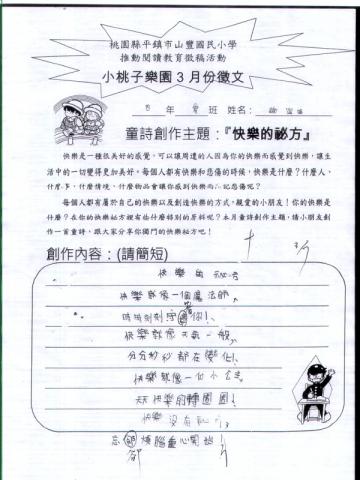 桃園縣平鎮市山豐國民小學
推動閱讀教育徵稿活動
小桃子樂園 3 月份徵文
年 班 姓名:
童詩創作主題:『快樂的祕方』
快樂是一種很美好的感覺,可以讓周遭的人因為你的快樂而感覺到快樂,讓生
活中的一切變得更加美好。每個人都有快樂和悲傷的時候,快樂是什麼?什麼人、
什麼事、什麼情境、什麼物品會讓你感到快樂而忘記悲傷呢?
每個人都有屬於自己的快樂以及創造快樂的方式,親愛的小朋友!你的快樂是
什麼?在你的快樂祕方裡有些什麼特別的原料呢?本月童詩創作主題,請小朋友創
作一首童詩,跟大家分享你獨門的快樂祕方吧!
創作內容:(請簡短)
快樂
快樂就像一個魔法師,
時時刻刻守著你!
快樂就像天氣一般,
分分秒秒都在變化!
快樂就像一個小
天天快樂的轉圈圈!
快樂 沒有
忘卻煩腦重心開始
卻